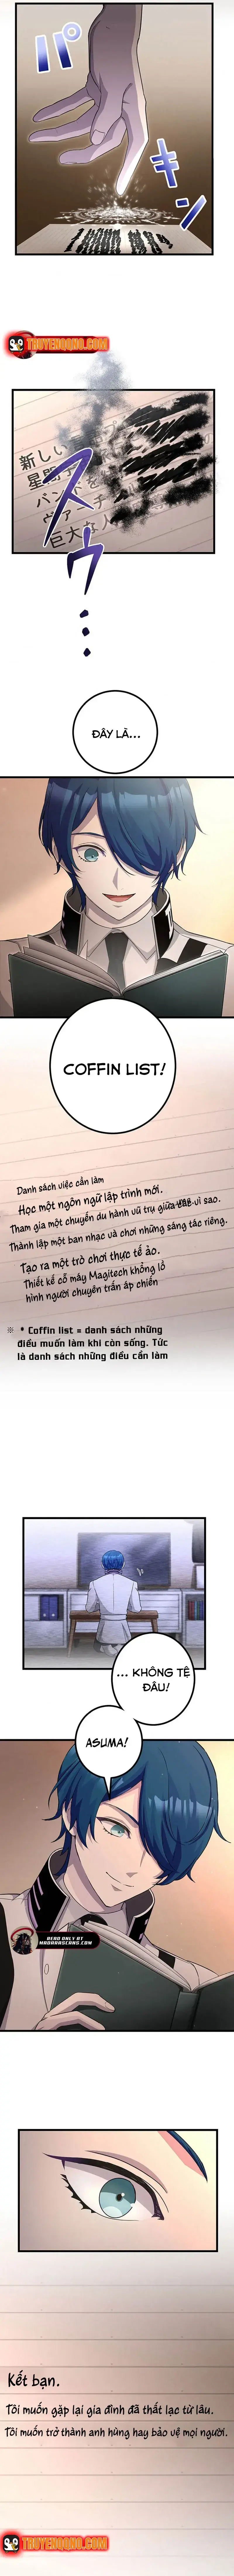 パキン
TRUYENGGNO.COM
新しい
星間
バンドを
ヴァーチ
巨大な人
スゥ...
ĐÂY LÀ...
COFFIN LIST!
Danh sách việc cần làm
Học một ngôn ngữ lập trình mới.
Tham gia một chuyến du hành vũ trụ giữa các vì sao.
Thành lập một ban nhạc và chơi những sáng tác riêng.
Tạo ra một trò chơi thực tế ảo.
Thiết kế cỗ máy Magitech khổng lồ
hình người chuyên trấn áp chiến
※ * Coffin list = danh sách những
điều muốn làm khi còn sống. Tức
là danh sách những điều cần làm
... KHÔNG TỆ
ĐÂU!
ASUMA!
READ ONLY AT
MADARASCANS.COM
Kết bạn.
Tôi muốn gặp lại gia đình đã thất lạc từ lâu.
Tôi muốn trở thành anh hùng hay bảo vệ mọi người.
TRUYENGGNO.COM